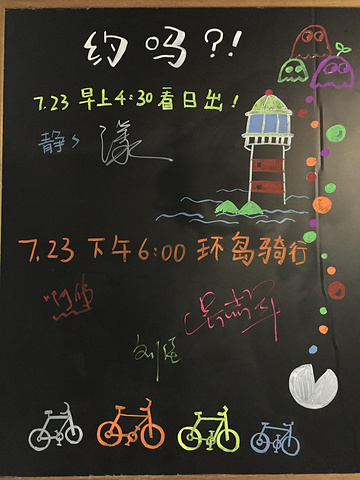 约吗?!
7.23 早上4:30看日出!
静 漾
7.23 下午6:00 环岛骑行